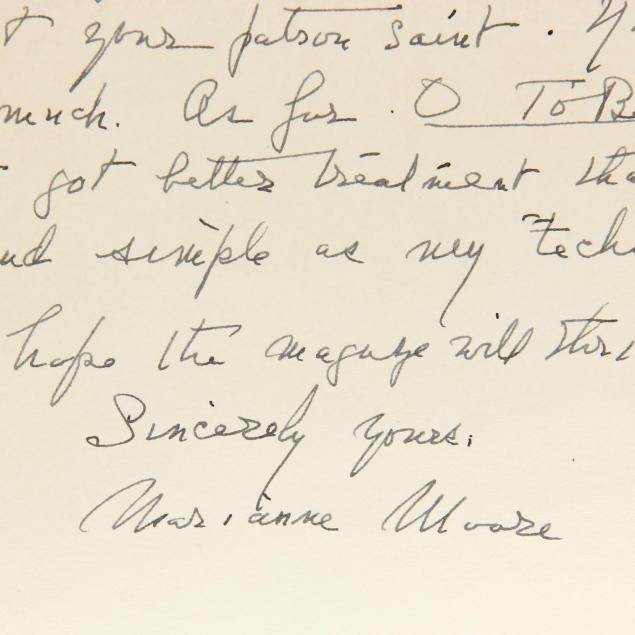 t your patron saint.
much. As for O To Be
got better treatment tha
nd simple as my tech
hope the magazine will thri
Sincerely yours,
Marianne Moore